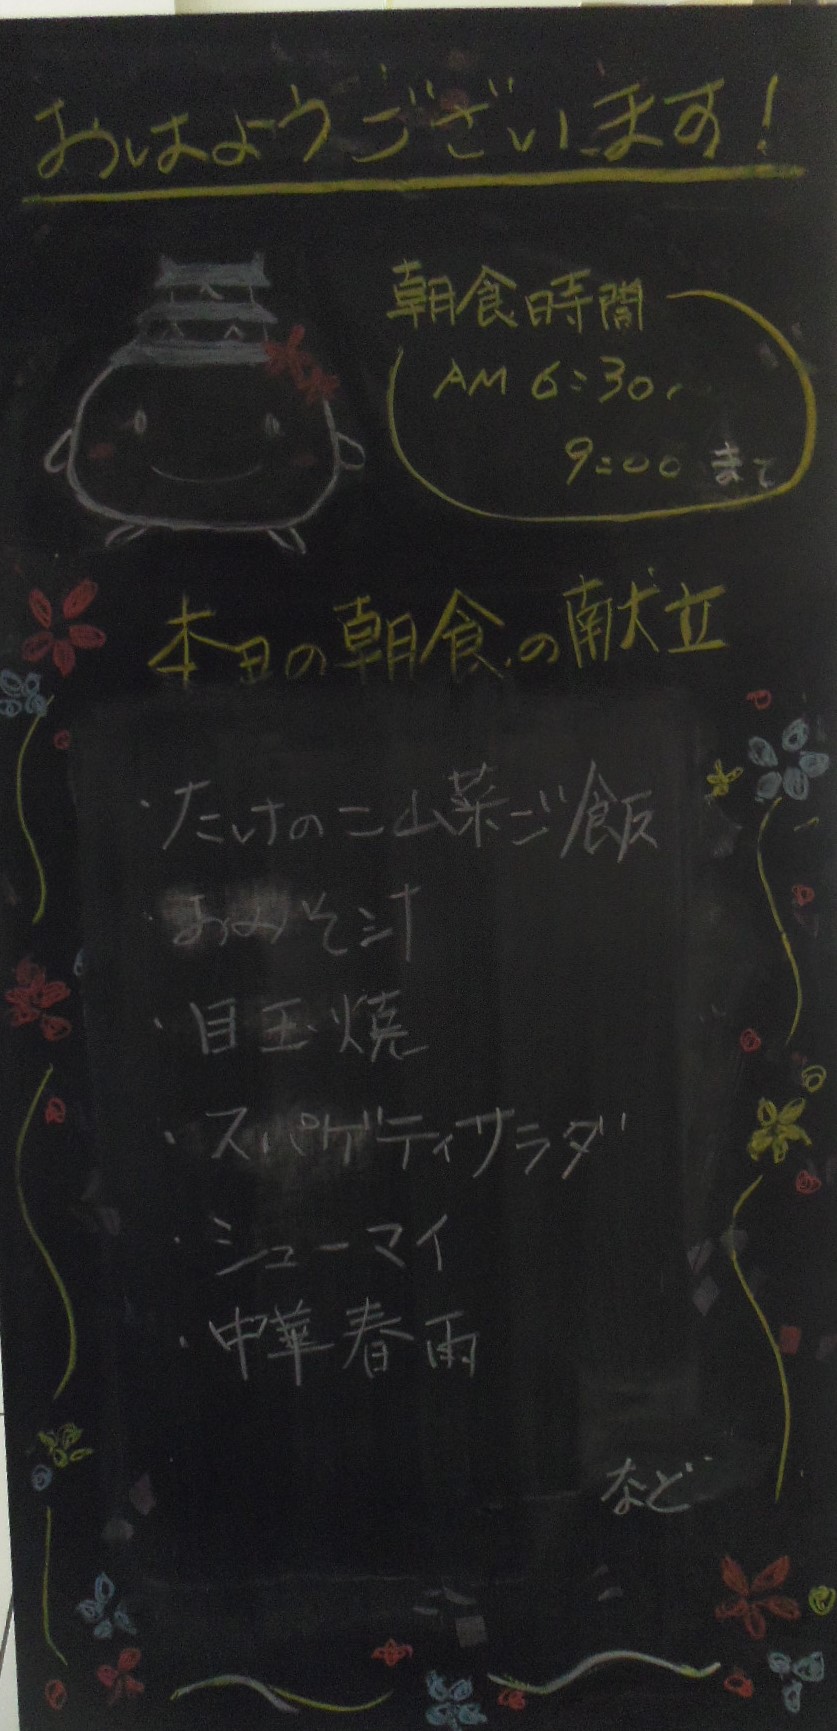 おはようございます!
朝食時間
AM 6:30~
9:00 まで
本日の朝食の献立
・たけのこ山菜ご飯
・おみそ汁
・目玉焼
・スパゲティサラダ
・シューマイ
・中華春雨
など